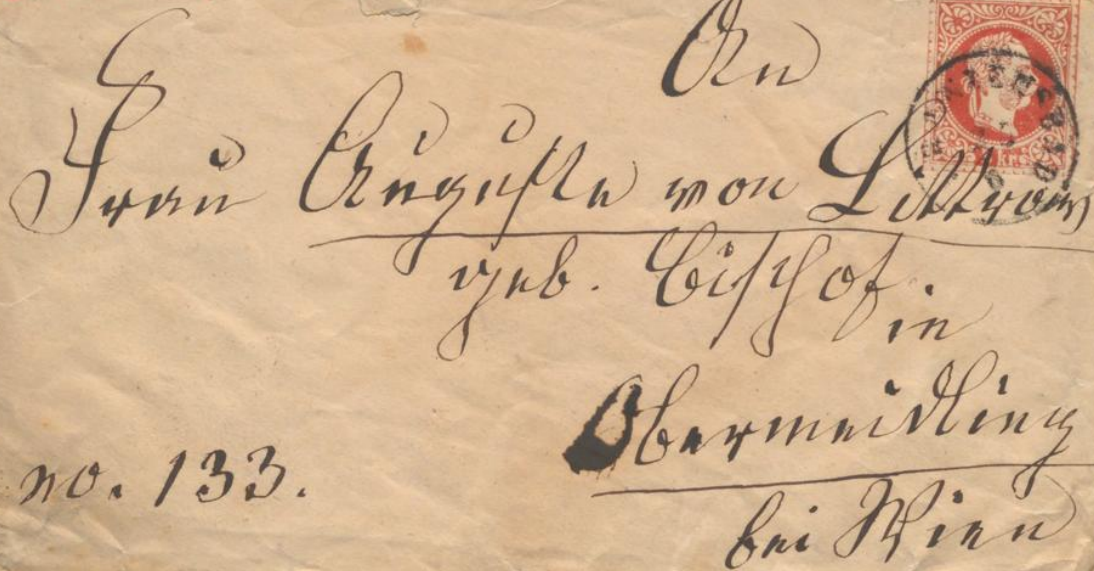 An
Frau Auguste von Littrow
geb. Bischof.
in
Obermeidling
no. 133.
bei Wien